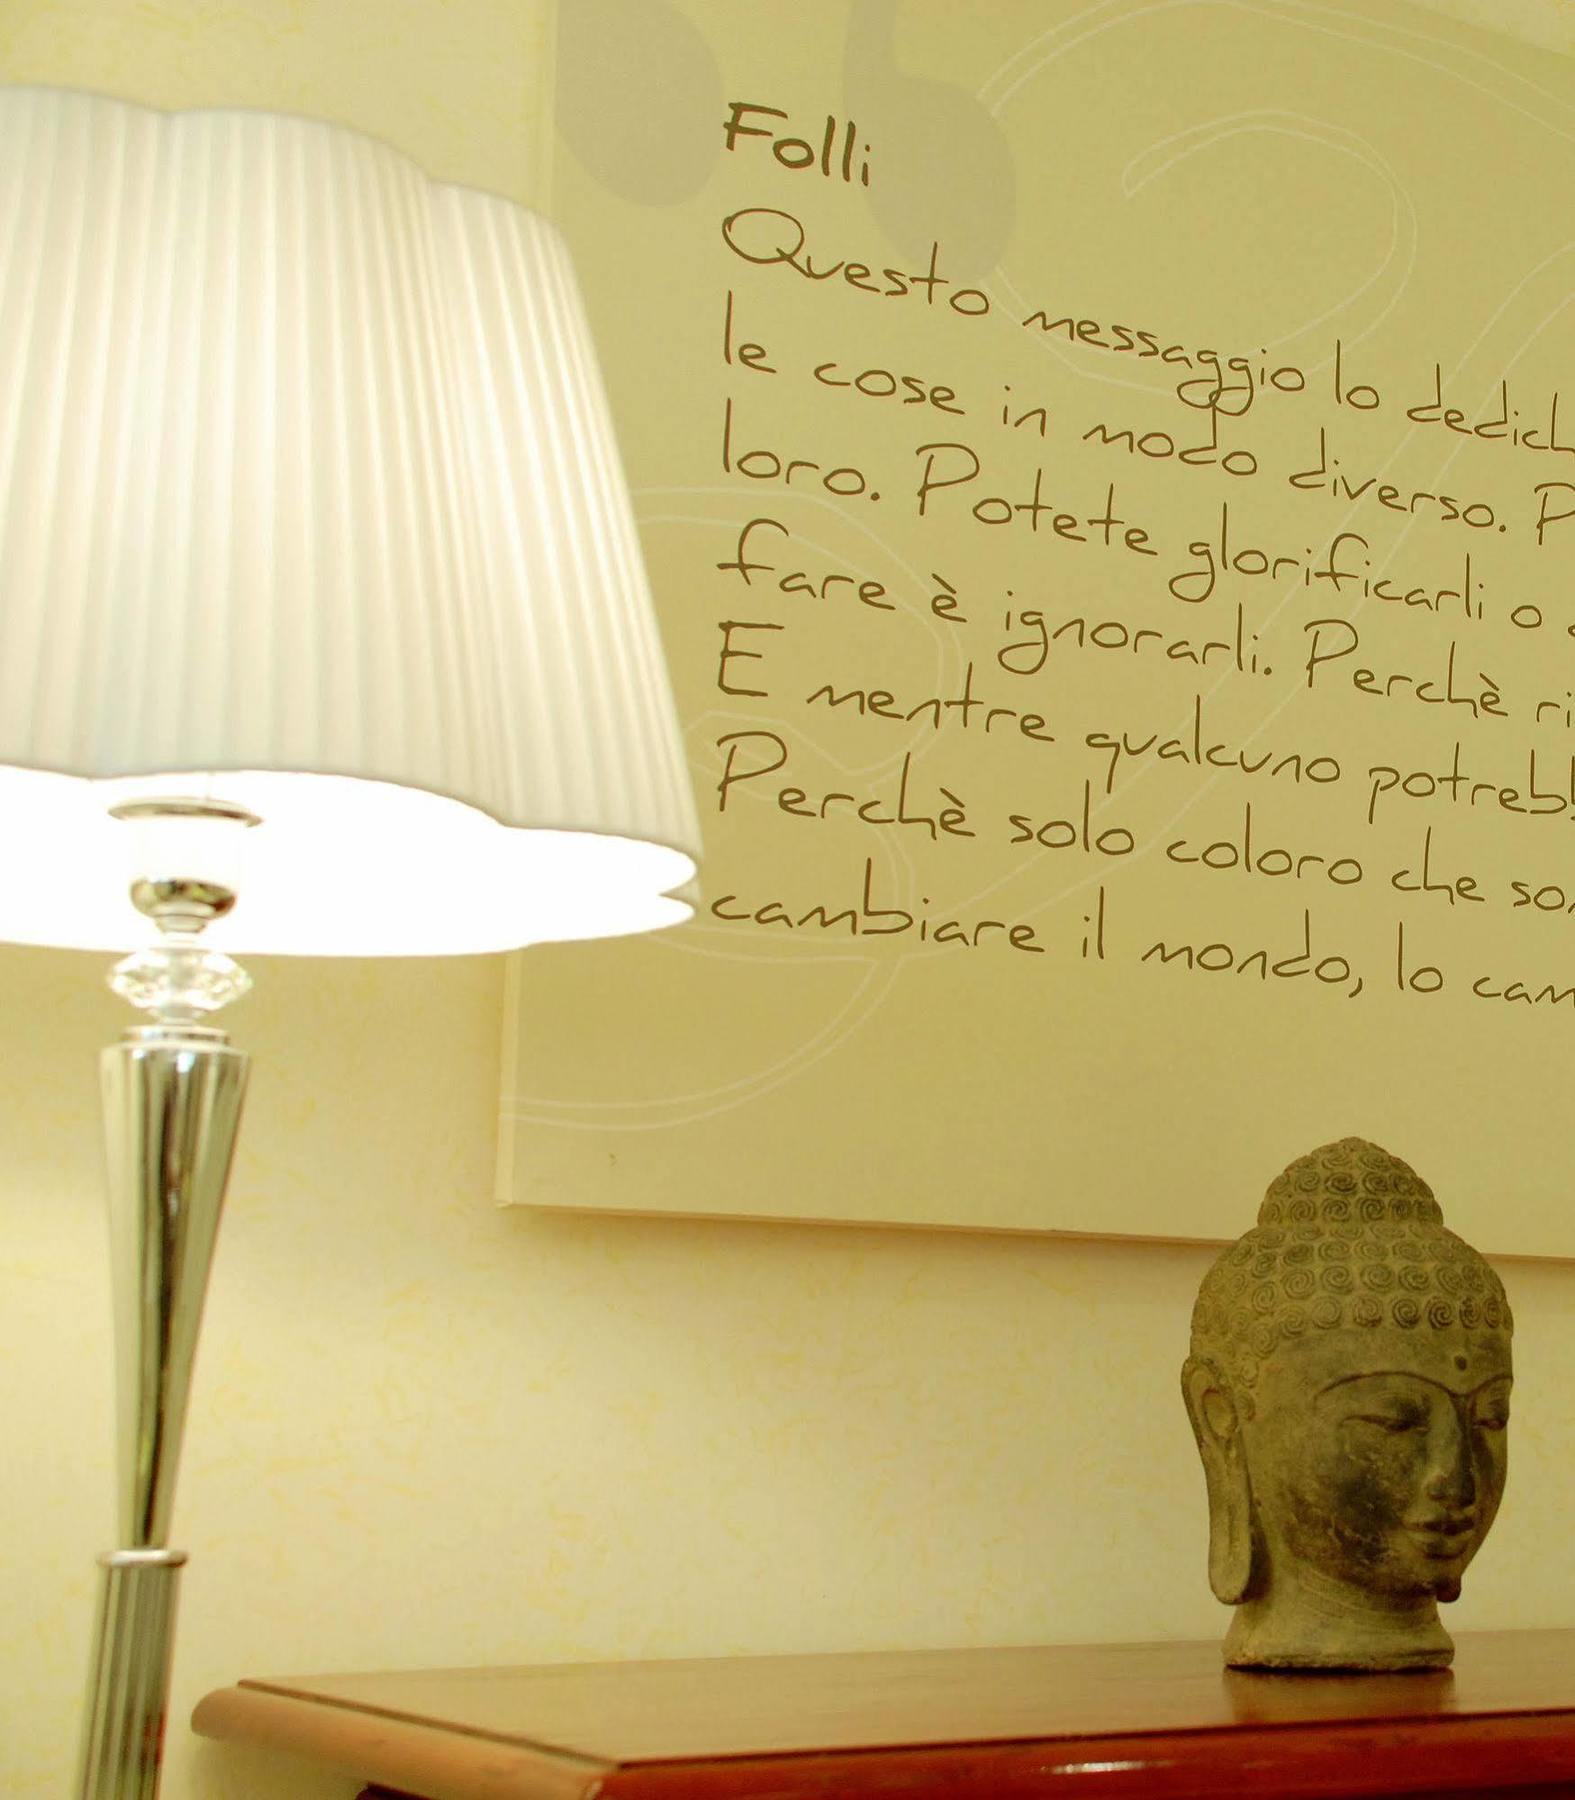 Folli
Questo messaggio lo dedich
le cose in modo diverso. P
loro. Potete glorificarli o
fare è ignorarli. Perchè ri
E mentre qualcuno potreb
Perchè solo coloro che so
cambiare il mondo, lo cam